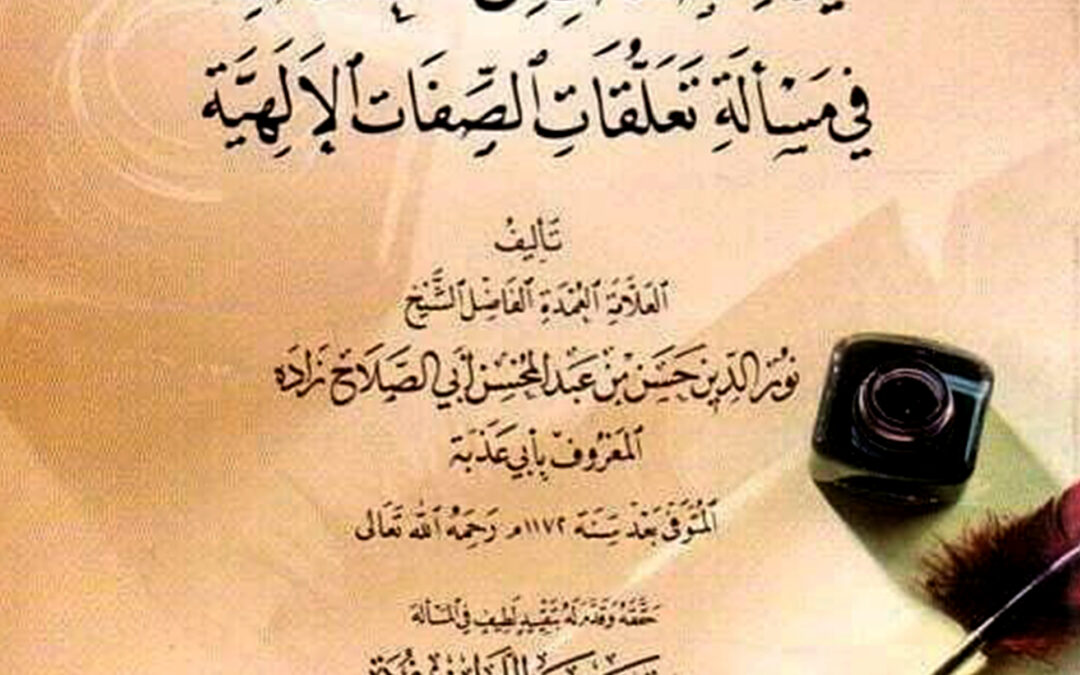 فِي مَسْأَلَةِ تَعَلُّقَاتِ ٱلصِّفَاتِ ٱلإِلَهِيَّة
تَأْلِيفُ
ٱلعَلَّامَةِ ٱلعُمْدَةِ ٱلفَاضِلِ ٱلشَّيْخ
نُورِ ٱلدِّينِ حَسَن بْن عَبْد ٱلمُحْسِن أَبِي ٱلصَّلَاح زَادَه
ٱلمَعْرُوف بِأَبِي عَذَبَة
ٱلمُتَوَفَّى بَعْد سَنَة ١١٧٢م رَحِمَهُ ٱللَّه تَعَالَى
حَقَّقَهُ وَقَدَّمَ لَهُ بِتَقْيِيدٍ لَطِيفٍ فِي ٱلمَسْأَلَة